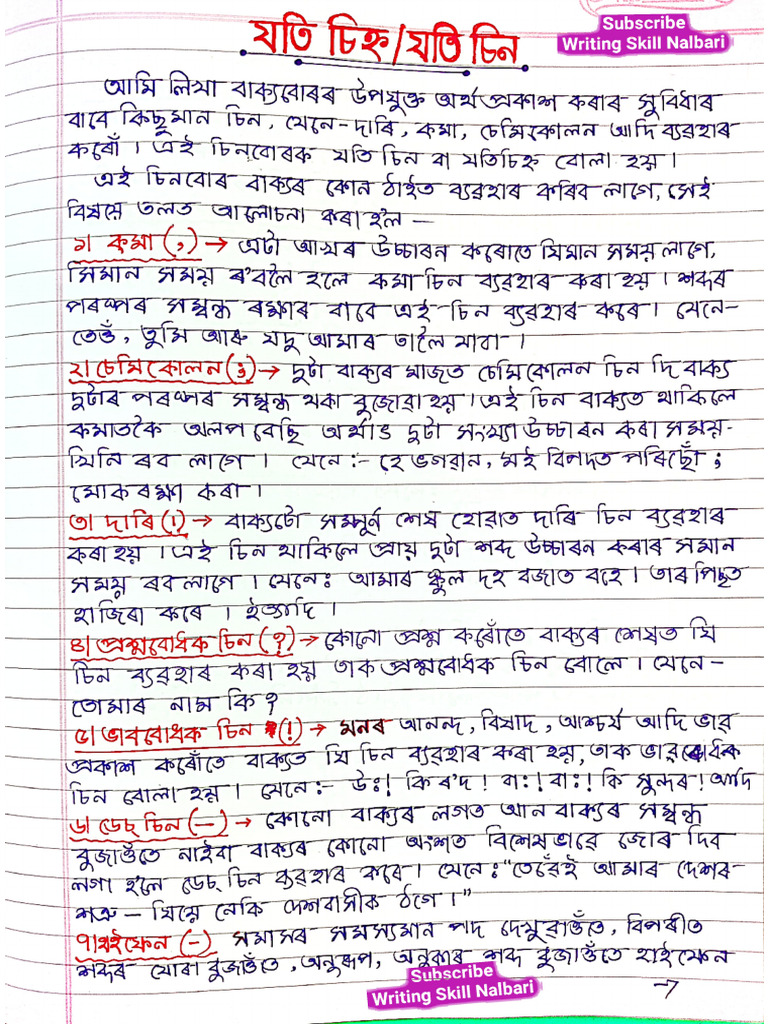 Subscribe
Writing Skill Nalbari
যতি চিহ্ন/যতি চিন
আমি লিখা বাক্যবোৰৰ উপযুক্ত অৰ্থ প্ৰকাশ কৰাৰ সুবিধাৰ
বাবে কিছুমান চিন, যেনে-দাৰি, কমা, চেমিকোলন আদি ব্যৱহাৰ
কৰোঁ। এই চিনবোৰক যতি চিন বা যতিচিহ্ন বোলা হয়।
এই চিনবোৰ বাক্যৰ কোন ঠাইত ব্যৱহাৰ কৰিব লাগে, সেই
বিষয়ে তলত আলোচনা কৰা হ'ল —
১। কমা (,) → এটা আখৰ উচ্চাৰন কৰোতে যিমান সময় লাগে,
সিমান সময় ৰ'বলৈ হলে কমা চিন ব্যৱহাৰ কৰা হয়। শব্দৰ
পৰস্পৰ সম্বন্ধ ৰক্ষাৰ বাবে এই চিন ব্যৱহাৰ কৰে। যেনে-
তেওঁ, তুমি আৰু যদু আমাৰ তালৈ যাবা।
২। চেমিকোলন (;) → দুটা বাক্যৰ মাজত চেমিকোলন চিন দি বাক্য
দুটাৰ পৰস্পৰ সম্বন্ধ থকা বুজোৱা হয়। এই চিন বাক্যত থাকিলে
কমাতকৈ অলপ বেছি অৰ্থাৎ দুটা সংখ্যা উচ্চাৰন কৰা সময়-
খিনি ৰব লাগে। যেনে:- হে ভগৱান, মই বিপদত পৰিছোঁ;
মোক ৰক্ষা কৰা।
৩। দাৰি (।) → বাক্যটো সম্পূৰ্ন শেষ হোৱাত দাৰি চিন ব্যৱহাৰ
কৰা হয়। এই চিন থাকিলে প্ৰায় দুটা শব্দ উচ্চাৰন কৰাৰ সমান
সময় ৰব লাগে। যেনেঃ আমাৰ স্কুল দহ বজাত বহে। তাৰ পিছত
হাজিৰা কৰে। ইত্যাদি।
৪। প্ৰশ্নবোধক চিন (?) → কোনো প্ৰশ্ন কৰোঁতে বাক্যৰ শেষত যি
চিন ব্যৱহাৰ কৰা হয় তাক প্ৰশ্নবোধক চিন বোলে। যেনে-
তোমাৰ নাম কি?
৫। ভাববোধক চিন (!) → মনৰ আনন্দ, বিষাদ, আশ্চৰ্য আদি ভাৱ
প্ৰকাশ কৰোঁতে বাক্যত যি চিন ব্যৱহাৰ কৰা হয়, তাক ভাৱবোধক
চিন বোলা হয়। যেনে:- উঃ! কি ৰ'দ! বাঃ! বাঃ! কি সুন্দৰ! আদি
৬। ডেচ্ চিন (—) → কোনো বাক্যৰ লগত আন বাক্যৰ সম্বন্ধ
বুজাওঁতে নাইবা বাক্যৰ কোনো অংশত বিশেষভাৱে জোৰ দিব
লগা হ'লে ডেচ্ চিন ব্যৱহাৰ কৰে। যেনেঃ "তেৱেঁই আমাৰ দেশৰ-
শত্ৰু — যিয়ে নেকি দেশবাসীক ঠগে।"
৭। হাইফেন (-) সমাসৰ সমস্যমান পদ দেখুৱাওঁতে, বিপৰীত
শব্দৰ যোৰা বুজাওঁতে, অনুৰূপ, অনুকাৰ শব্দ বুজাওঁতে হাইফেন
Subscribe
Writing Skill Nalbari